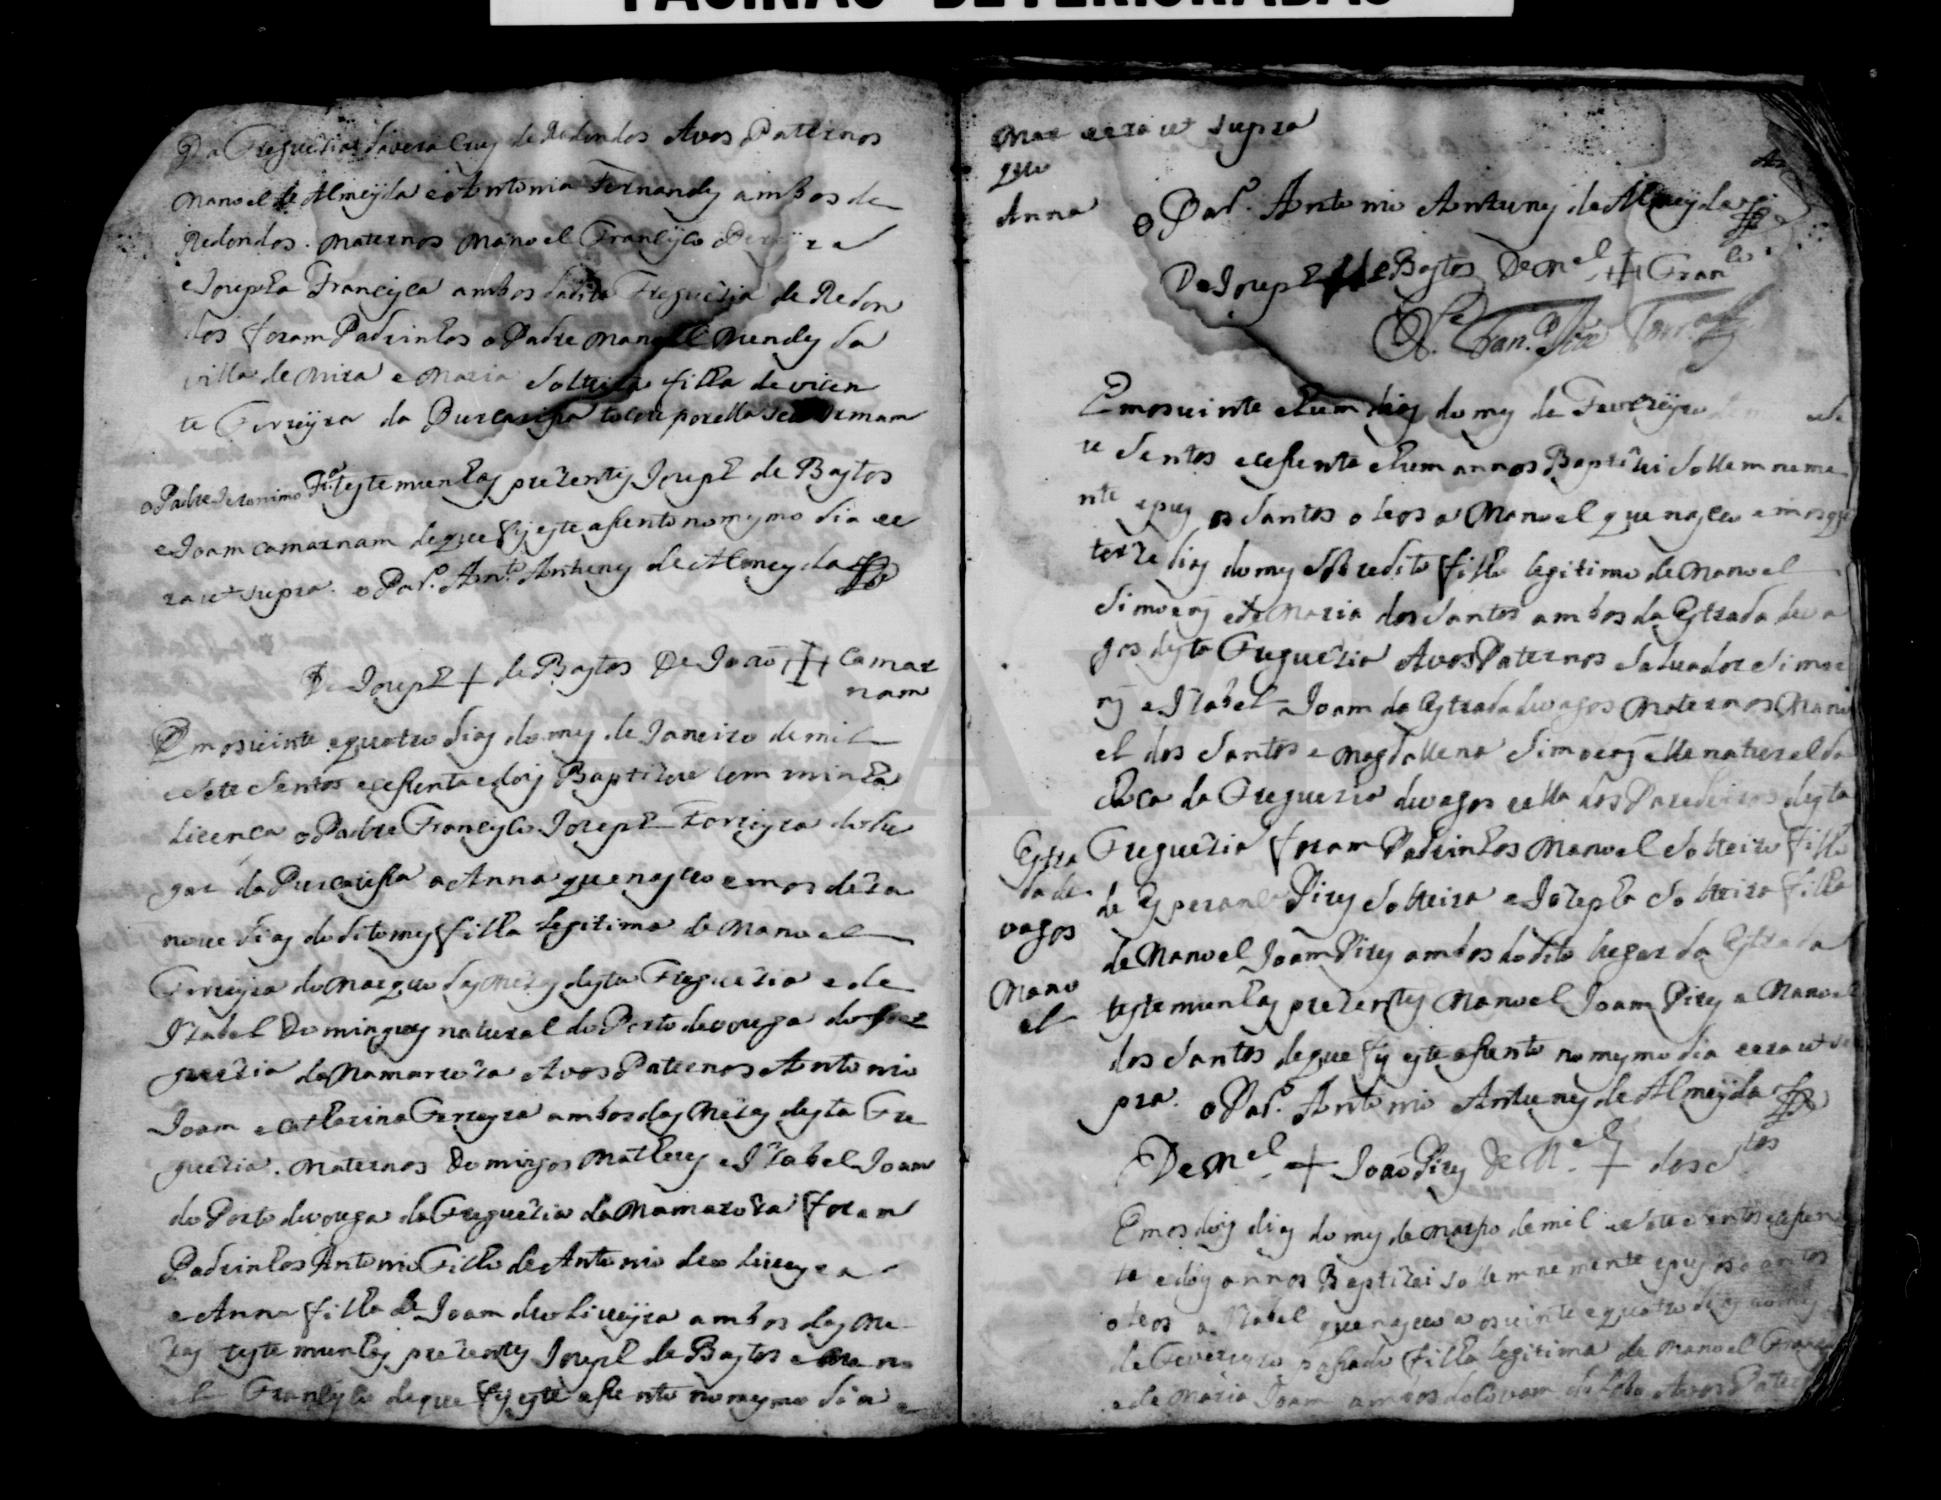 PAGINAS DETERIORADAS
Da Freguezia da vera Cruz de Redondos Avos Paternos
Manoel de Almeyda e Antonia Fernandes ambos de
Redondos. Maternos Manoel Francisco
e Josepha Francisca ambos da dita Freguezia de Redon
dos foram Padrinhos o Padre Manoel Mendes da
villa de Mira e Maria Solteira filha de vicen
te Ferreyra da tocou por ella seu Irmam
o Padre Jeronimo testemunhas prezentes Joseph de Bastos
e Joam camarnam de que fis este asento no mesmo dia ee
ra ut supra. o Par.º Ant.º Antunes de Almeyda
De Joseph + de Bastos De Joaõ + Camar
nam
Em os vinte e quatro dias do mes de Janeiro de mil
e sete sentos e sesenta e dois Baptizou com minha
Licenca o Padre Francisco Joseph Ferreyra do lu
gar da a Anna que nasceo em os deza
nove dias do dito mes filha legitima de Manoel
Ferreyra do Marquo das Mezas desta Freguezia e de
Izabel Domingues natural do Porto de vouga da Fre
guezia da Mamaroza Avos Paternos Antonio
Joam e Catharina Ferreyra ambos das Mezas desta Fre
guezia. Maternos Domingos Matheus e Izabel Joam
do Porto de vouga da Freguezia da Mamaroza foram
Padrinhos Antonio Filho de Antonio de oliveyra
e Anna filha de Joam de oliveyra ambos das Me
zas testemunhas prezentes Joseph de Bastos e Mano
el Francisco de que fis este asento no mesmo dia e
Mar
quo
Anna
eera ut supra
o Par.º Antonio Antunes de Almeyda
De Joseph + de Bastos De M.el + Fran.co
Em os vinte e hum dias do mes de Fevereyro
te sentos e sesenta e hum annos Baptizei Sollemneme
nte e pus os Santos oleos a Manoel que nasceo em os qua
torze dias do mes sobredito filho legitimo de Manoel
Simoens e de Maria dos Santos ambos da Estrada de va
gos desta Freguezia Avos Paternos Salvador Simoe
ns e Izabel Joam da Estrada de vagos Maternos Mano
el dos Santos e Magdallena Simoens elle natural da
da Freguezia de vagos e ella dos Paredeiros desta
Freguezia foram Padrinhos Manoel Solteiro filho
de Esperanca Pires Solteira e Jozepha Solteira filha
de Manoel Joam Pires ambos do dito lugar da Estrada
testemunhas prezentes Manoel Joam Pires e Manoel
dos Santos de que fis este asento no mesmo dia eera ut su
pra. o Par.º Antonio Antunes de Almeyda
Estra
da de
vagos
Mano
el
De M.el + Joaõ Pires De M.el + dos S.tos
Em os dois dias do mes de Março de mil e sete sentos e sesen
ta e dois annos Baptizei sollemnemente e pus os santos
oleos a Izabel que nasceo a os vinte e quatro dias do mes
de Fevereyro pasado filha legitima de Manoel
e de Maria Joam ambos do Covam do Lobo Avos Pater